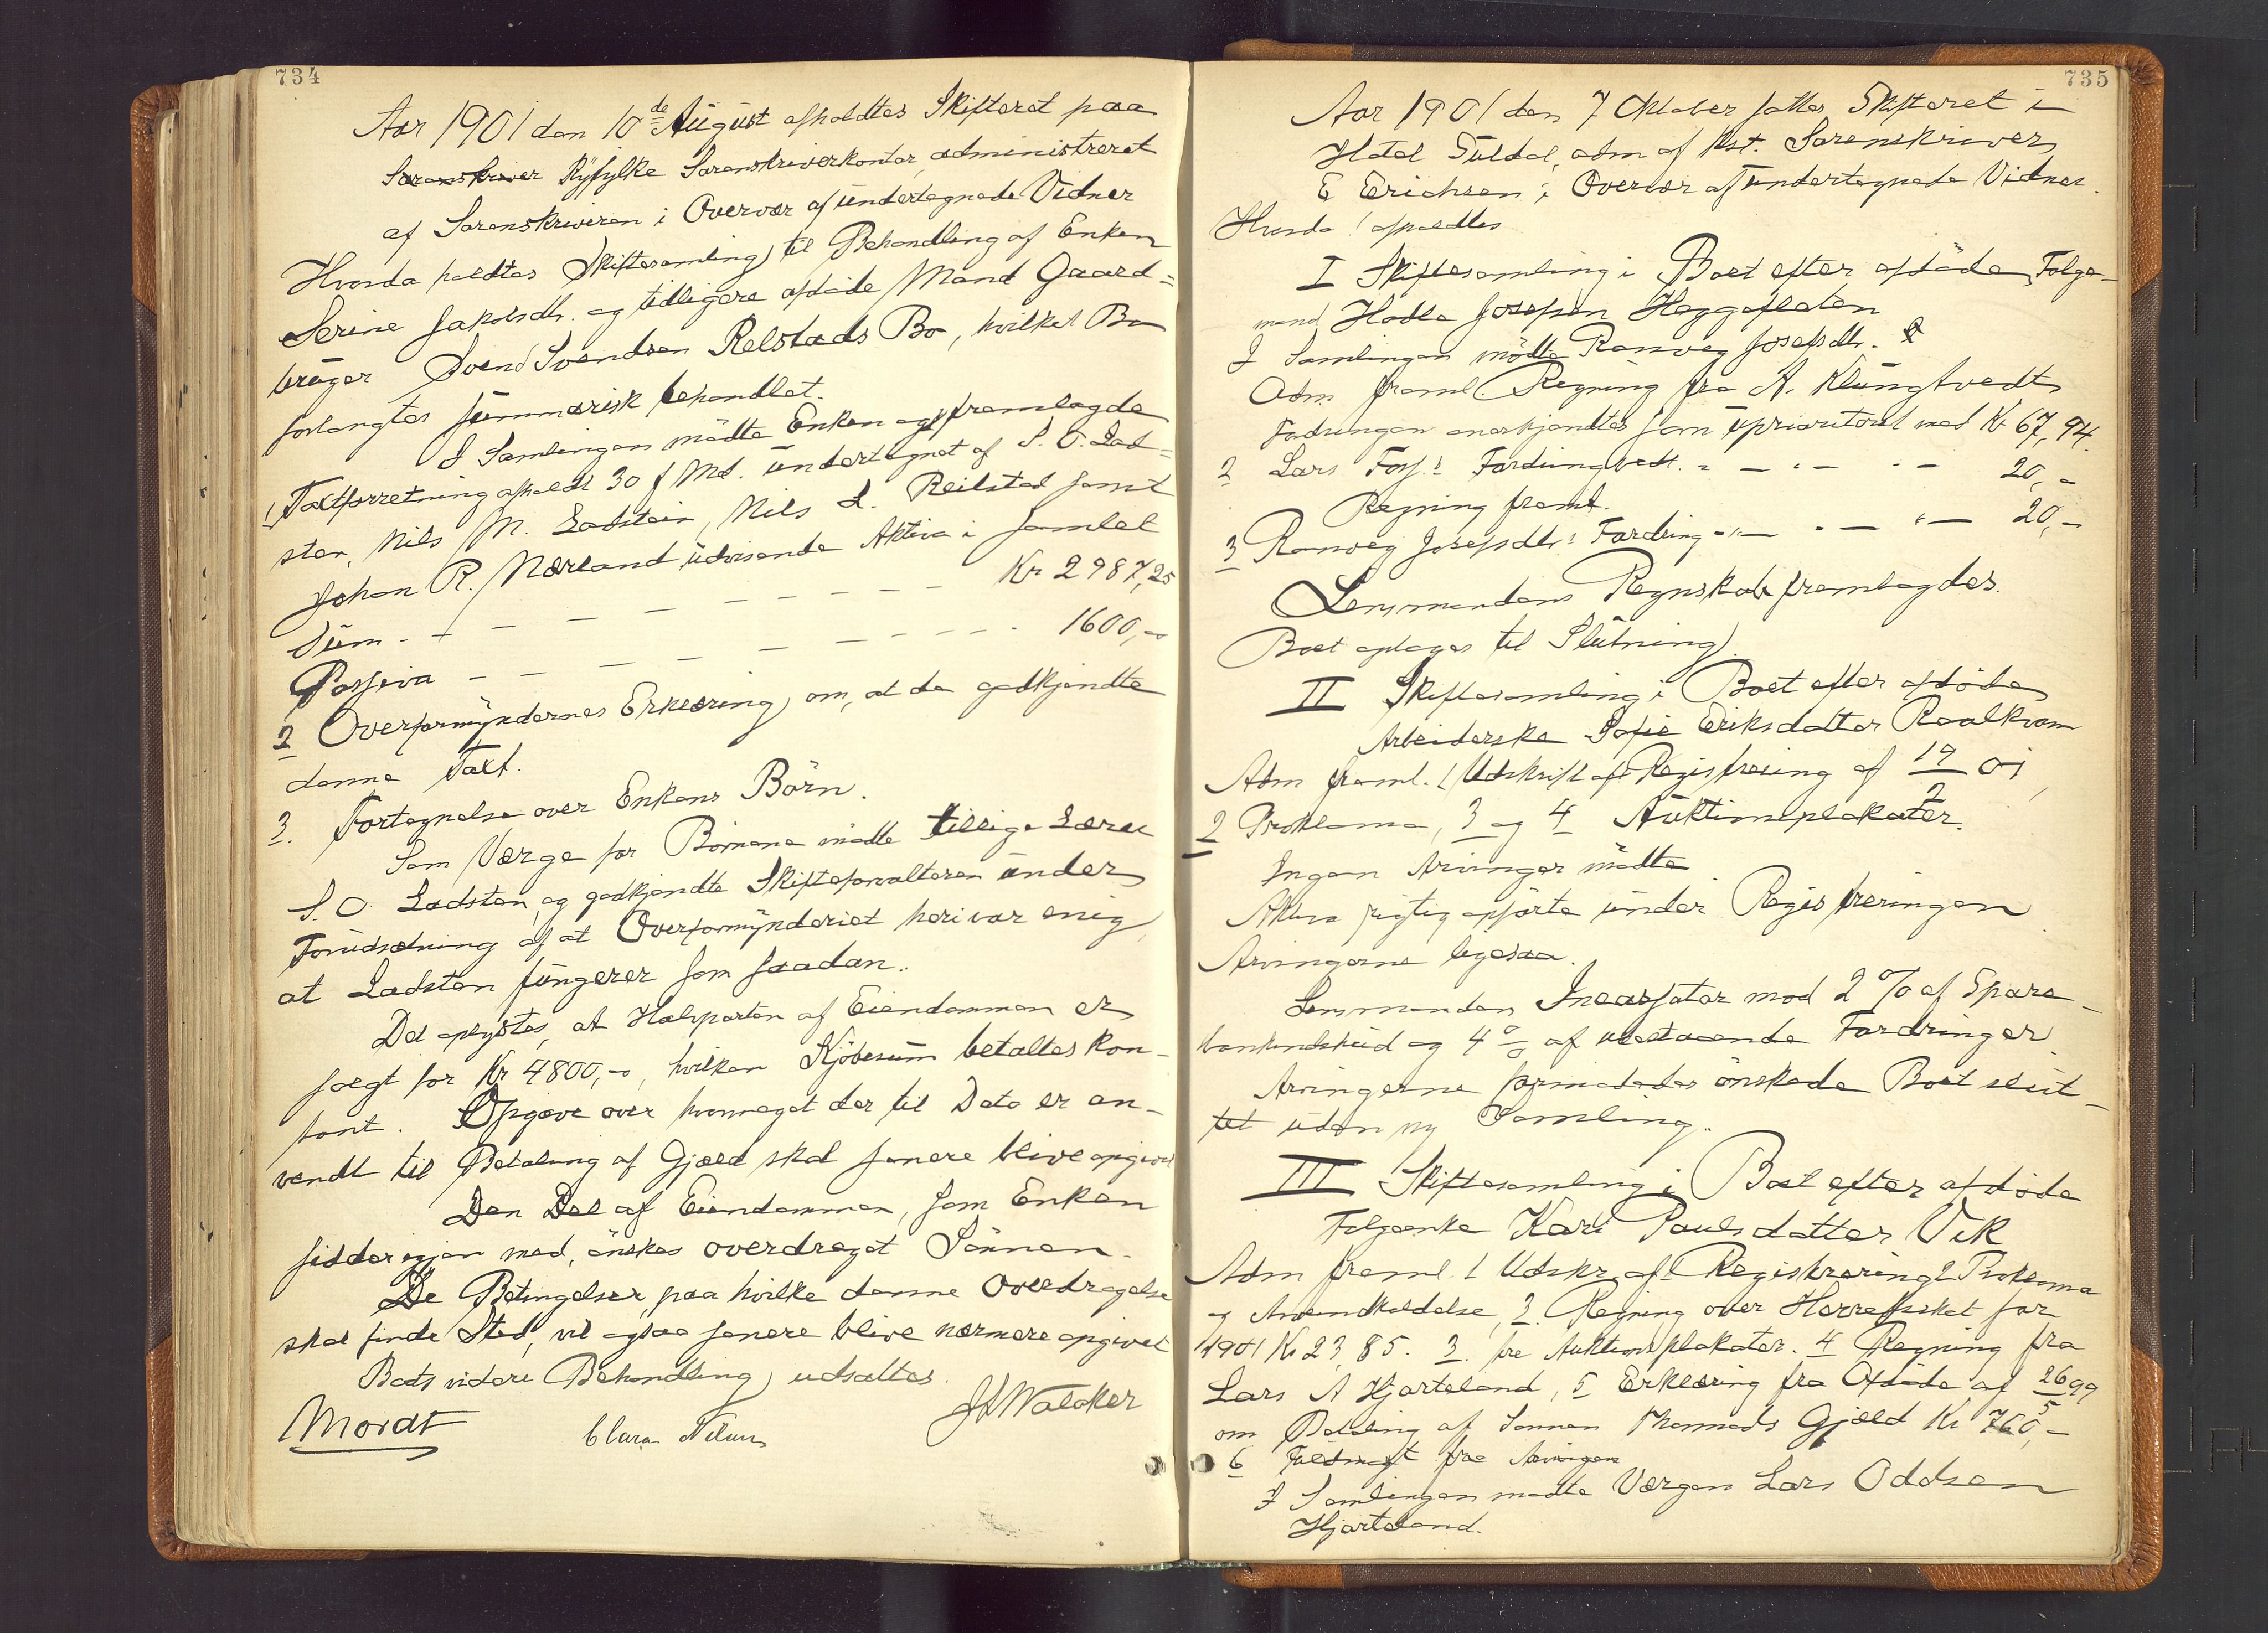 734
Aar 1901 den 10de August afholdtes Skifteret paa
Sorenskriver Ryfylke Sorenskriverkontor, administreret
af Sorenskriveren i Overvær af undertegnede Vidner
Hvorda holdtes Skiftesamling til Behandling af Enken
Serine Jakobsdtr. og tidligere afdøde Mand Gaard=
bruger Svend Svendsen Relstads Bo, hvilket Bo
forlangtes summarisk behandlet.
I Samlingen mødte Enken og fremlagde
1 Taxtforretning afholdt 30 f Md. undertegnet af S. O. Lad=
sten, Nils M. Ladstein, Nils L. Reilstad samt
Johan R. Nærland udvisende Aktiva i samlet
Sum - - - - - - - - Kr 2987,25
Passiva - - - - - - - - 1600,-
2 Overformyndernes Erklæring om, at de godkjendte
denne Taxt.
3. Fortegnelse over Enkens Börn.
Som Værge for Börnene mödte tillige Lærer
S. O. Ladsten og godkjendte Skifteforvalteren under
Forudsætning af at Overformynderiet heri var enig,
at Ladsten fungerer som saadan.
Det oplystes, at Halvparten af Eiendommen er
solgt for Kr 4800,-, hvilken Kjöbesum betaltes kon-
tant. Opgave over hvormeget der til Dato er an-
vendt til Betaling af Gjæld skal senere blive opgivet
Den Del af Eiendommen, som Enken
sidder igjen med, önskes overdraget Sönnen.
De Betingelser, paa hvilke denne Overdragelse
skal finde Sted, vil ogsaa senere blive nærmere opgivet
Boets videre Behandling udsattes.
Mordt Clara Nilsen J Walaker
735
Aar 1901 den 7 Oktober sattes Skifteret i
Hotel Suldal, adm af Kst. Sorenskriver
E Erichsen i Overvær af undertegnede Vidner.
Hvorda afholdtes
I Skiftesamling i Boet efter afdöde Folge-
mand Hadle Josefsen Heggefladen
I Samlingen mödte Ranveg Josefsdtr.
Adm freml. 1 Regning fra A. Klungtvedt
Fodringen anerkjendtes som uprioriteret med Kr 67,94.
2 Lars Fordring - - - - 20,-
Regning freml.
3 Ranveg Josefsdtr: Fordring - - - - 20,-
Lensmandens Regnskab fremlagdes.
Boet optages til Slutning.
II Skiftesamling i Boet efter afdöde
Arbeiderske Sofie Eriksdatter Roalkvam
Adm freml. 1 Udskrift af Registrering af 19/2 01,
2 Proklama, 3 og 4 Auktionsplakater.
Ingen Arvinger mödte
Aktiva rigtig opförte under Registreringen
Arvingerne ligesaa.
Lensmanden Incassator mod 2 % af Spare-
bankindskud og 4 % af udestaaende Fordringer.
Arvingerne formodedes önskede Boet slut-
tet uden ny Samling.
III Skiftesamling i Boet efter afdöde
Folgeenke Kari Paulsdatter Vik
Adm freml. 1 Udskr. af Registrering 2 Proklama
og Anmeldelse, 2. Regning over Herredsskat for
1901 Kr 23,85. 3. tre Auktionsplakater. 4 Regning fra
Lars A Hjorteland, 5 Erklæring fra Afdöde af 26/5 99
om Betaling af Sönnen Gjæld Kr 760,-
6 Fuldmagt fra Arvingen
I Samlingen mödte Værgen Lars Oddsen
Hjorteland.